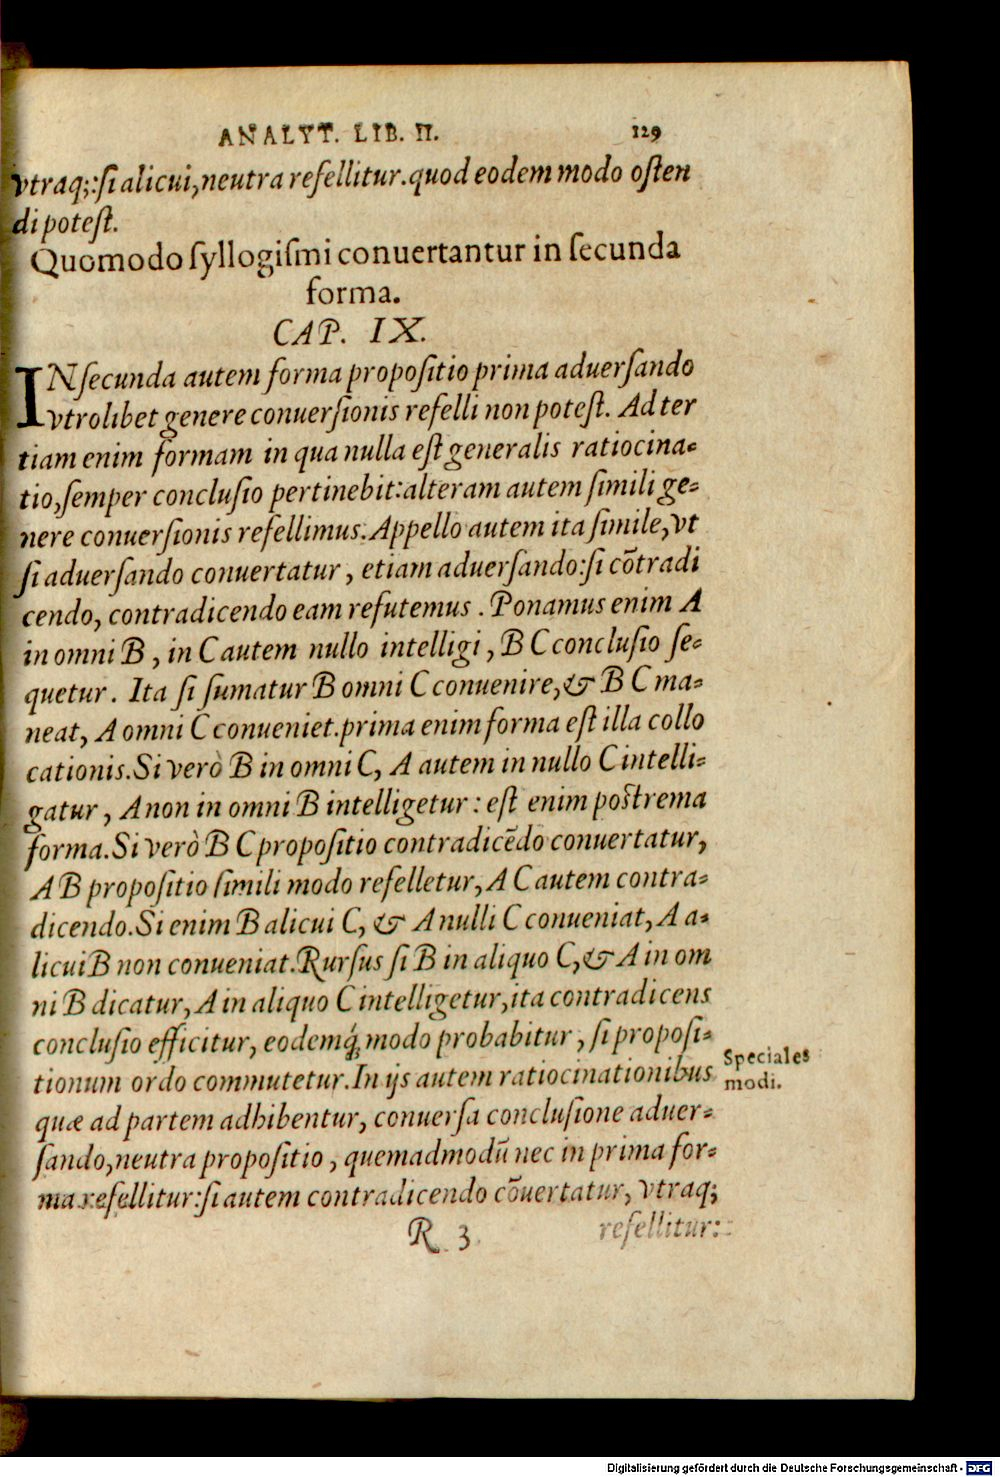 ANALYT. LIB. II. 129
vtraq;: ſi alicui, neutra refellitur. quod eodem modo oſten
di poteſt.
Quomodo ſyllogiſmi conuertantur in ſecunda
forma.
CAP. IX.
IN ſecunda autem forma propoſitio prima aduerſando
vtrolibet genere conuerſionis refelli non poteſt. Ad ter
tiam enim formam in qua nulla eſt generalis ratiocina-
tio, ſemper concluſio pertinebit: alteram autem ſimili ge-
nere conuerſionis refellimus. Appello autem ita ſimile, vt
ſi aduerſando conuertatur, etiam aduerſando: ſi cõtradi
cendo, contradicendo eam refutemus. Ponamus enim A
in omni B, in C autem nullo intelligi, B C concluſio ſe-
quetur. Ita ſi ſumatur B omni C conuenire, & B C ma-
neat, A omni C conueniet. prima enim forma eſt illa collo
cationis. Si verò B in omni C, A autem in nullo C intelli-
gatur, A non in omni B intelligetur: eſt enim poſtrema
forma. Si verò B C propoſitio contradicẽdo conuertatur,
A B propoſitio ſimili modo refelletur, A C autem contra-
dicendo. Si enim B alicui C, & A nulli C conueniat, A a-
licui B non conueniat. Rurſus ſi B in aliquo C, & A in om
ni B dicatur, A in aliquo C intelligetur, ita contradicens
concluſio efficitur, eodemq́; modo probabitur, ſi propoſi-
tionum ordo commutetur. In ijs autem ratiocinationibus
Speciales
modi.
quæ ad partem adhibentur, conuerſa concluſione aduer-
ſando, neutra propoſitio, quemadmodũ nec in prima for-
ma refellitur: ſi autem contradicendo cõuertatur, vtraq;
R 3 refellitur:
Digitalisierung gefördert durch die Deutsche Forschungsgemeinschaft - DFG